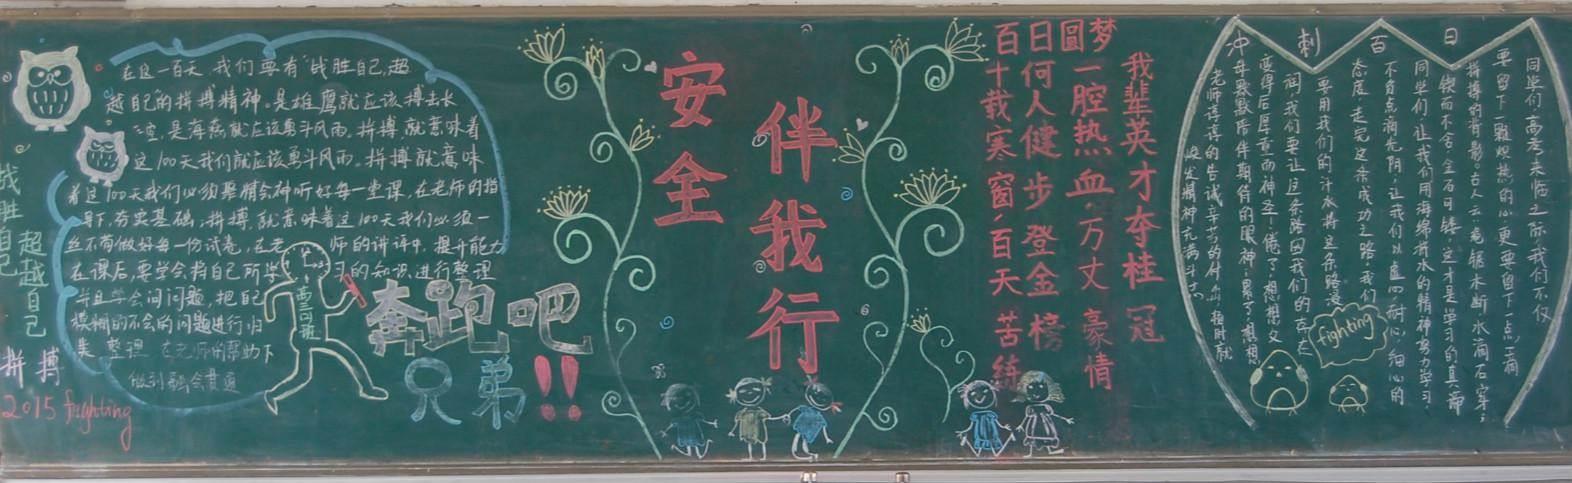 在这一百天,我们要有“战胜自己,超
越自己”的拼搏精神。是雄鹰就应该搏击长
空,是海燕就应该勇斗风雨。拼搏就意味着
这100天我们就应该勇斗风雨。拼搏就意味
着这100天我们必须聚精会神听好每一堂课,在老师的指
导下,夯实基础,拼搏就意味着这100天我们必须一
丝不苟做好每一份试卷,在老师的讲评中,提升能力
在课后,要学会将自己所学习的知识,进行整理
并且学会问问题,把自己
模糊的不会的问题进行归
类,整理,在老师的帮助下
做到融会贯通
战胜自己
超越自己
拼搏
2015 fighting
高三班
奔跑吧
兄弟!!
安全
伴我行
圆梦
百日
我辈英才夺桂冠
一腔热血,万丈豪情
何人健步登金榜
百十载寒窗,百天苦练
冲刺百日
同学们,高考来临之际,我们不仅
要留下一颗炽热的心,更要留下一点
拼搏的背影。古人云:绳锯木断,水滴石穿,
锲而不舍,金石可镂,这才是学习的真谛
同学们,让我们用海绵将水的精神努力学习,
不负点滴光阴,让我们以虚心,耐心,细心的
态度,走完这条成功之路,我们
要用我们的汗水将这条路浸
润,我们要让这条路因我们的
变得后厚重而神圣,倦了,想想父
母默默陪伴期待的眼神,累了,想想
老师谆谆的告诫,辛苦的付出
焕发精神,充满斗志
fighting